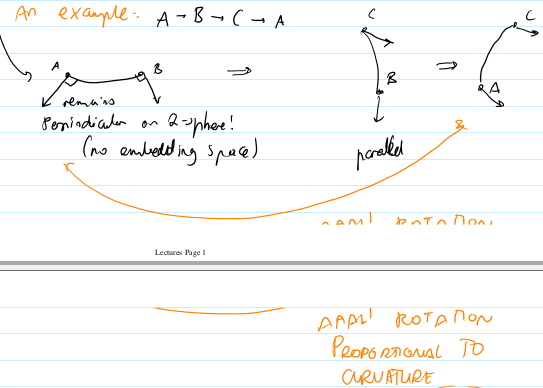 An example:- A → B → C → A
C
C
A
B
B
A
remains
Perpindicular on 2-sphere!
(no embedding space)
parallel
Lectures Page 1
AHA! ROTATION
PROPORTIONAL TO
CURVATURE